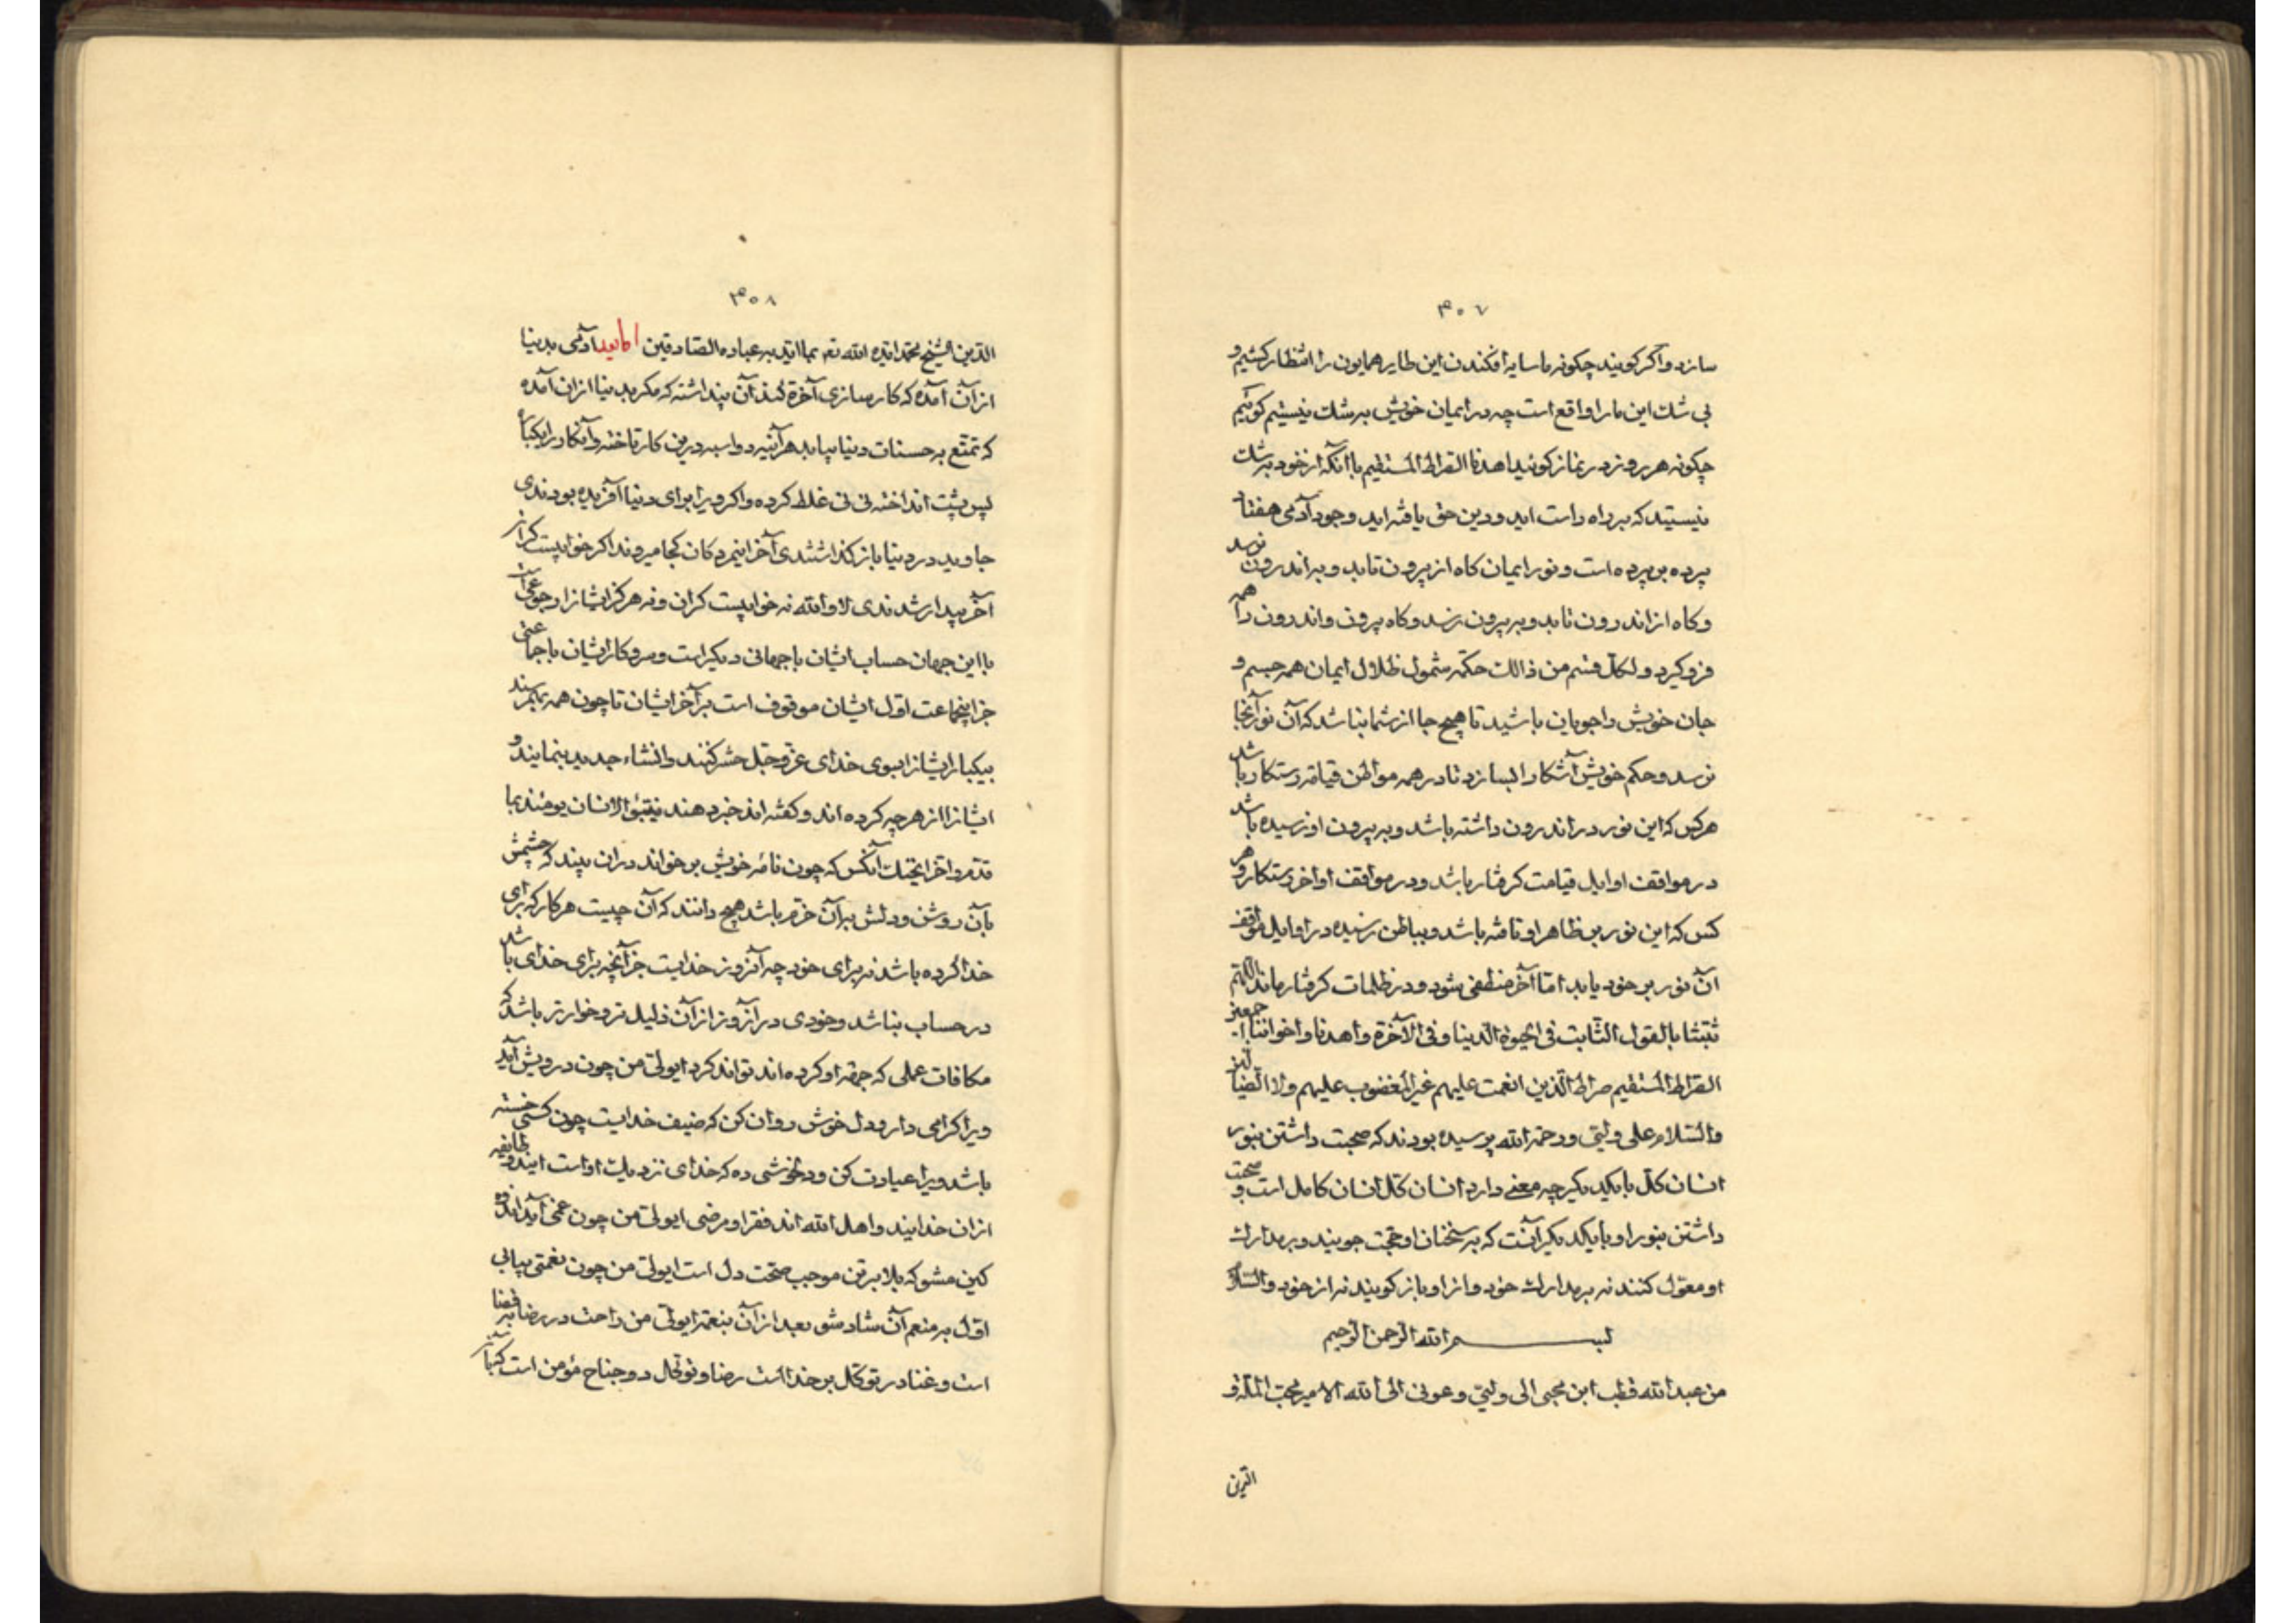 ۳۰۷
سازد واگر کویند چکونه ما سایه افکندن این طایر همایون را انتظار کشیم و
بی شك این ما را واقع است چه در ایمان خویش به شك نیستیم کوئیم
چکونه هر روز در نماز کوئید اهدنا الصراط المستقیم با آنکه از خود به شك
نیستید که بر راه راست اید و دین حق یافته اید وجود آدمی هفتاد
پرده بر پرده است و نور ایمان کاه از بیرون تابد و به اندرون نرسد
وکاه از اندرون تابد و به بیرون نرسد وکاه بیرون و اندرون را همه
فرو کیرد ولکل قسم من ذالك حکمه شمول ظلال ایمان همه جسم و
جان خویش را جویان باشید تا هیچ جا از شما نباشد که آن نور آنجا
نرسد و حکم خویش آشکارا نسازد تا در همه مواطن قیامة رستکار باشد
هر کس که این نور در اندرون داشته باشد و به بیرون او نرسیده باشد
در مواقف اوایل قیامت کرفتار باشد و در مواقف اواخر رستکار و هر
کس که این نور بر ظاهر او تافته باشد و بباطن نرسیده در اوایل مواقف
آن نور بر خود یابد امّا آخر منطفی شود و در ظلمات کرفتار ماند اللّهم
ثبّتنا بالقول الثّابت فی الحیوة الدّینا و فی الآخرة و اهدنا و اخواننا اجمعین
الصّراط المستقیم صراط الّذین انعمت علیهم غیر المغضوب علیهم ولا الضّالین
والسّلام علی ولیّی ورحمة الله پرسیده بودند که صحبت داشتن بنور
انسان کلّ با یکدیکیر چه معنی دارد انسان کلّ انسان کامل است و صحبت
داشتن بنور او با یکدیکر آنست که به سخنان او حجّت جویند و بر مدارك
او معوّل کنند نه بر مدارك خود و از او باز کویند نه از خود والسّلام
بسم الله الرّحمن الرّحیم
من عبد الله قطب ابن محیی الی ولیّی و عونی الی الله الامیر محبّ الملّة و
الدّین
۳۰۸
الدّین الشّیخ محمّد ایّده الله تعـ بما ایّد به عباده الصّادقین امّا بعد آدمی بدینا
از آن آمده که کارسازی آخرة کند آن پنداشته که مکر بدینا از ان آمده
که تمتّع به حسنات دینا بیابد هر آینه دواسبه در ین کار تاخته و آنکار را یکباره
پس پشت انداخته نی نی غلط کرده و اکر ویرا برای دینا آفریده بودندی
جاوید در دینا باز کذاشتندی آخر اینمردکان کجا میروند اکر خوابیست کران
آخر بیدار شدندی لا والله نه خوابیست کران و نه هرکز ایشانرا رجوعی
با این جهان حساب ایشان با جهانی دیکر است و سر و کار ایشان با جماعتی
جز اینجماعت اوّل ایشان موقوف است بر آخر ایشان تا چون همه بهم رسند
بیکبار ایشانرا بسوی خدای عزّ و جلّ حشر کنند و انشاء جدید بنمایند و
ایشانرا از هر چه کرده اند و کفته اند خبر دهند ینبّؤ الانسان یومئذ بما
قدّم و اخّر ایخنك آنکس که چون نامه خویش بر خواند در ان بیند که چشمش
بآن روشن و دلش به آن خرّم باشد هیچ دانند که آن چیست هر کار که برای
خدا کرده باشد نه برای خود چه آنروز خدایست جز آنچه برای خدای باشد
در حساب نباشد وخودی در آنروز از آن ذلیل تر و خوارتر باشد که
مکافات عملی که جهة او کرده اند تواند کرد ایولیّ من چون درویش آید
ویرا کرامی دار و دل خوش روان کن که ضیف خدایست چون کسی خسته
باشد ویرا عیادت کن و دلخوشی ده که خدای نزدیك او است ایندو طایفه
از ان خدایند و اهل الله اند فقرا و مرضی ایولیّ من چون غمی آید اندوه
کین مشو که بلا بر تن موجب صحّت دل است ایولیّ من چون نعمتی بیابی
اوّل به منعم آن شاد شو بعد از آن بنعمة ایولیّ من راحت در رضا به قضا
است و غنا در توکّل بر خدا است رضا و توکّل دو جناح مؤمن است که بآن